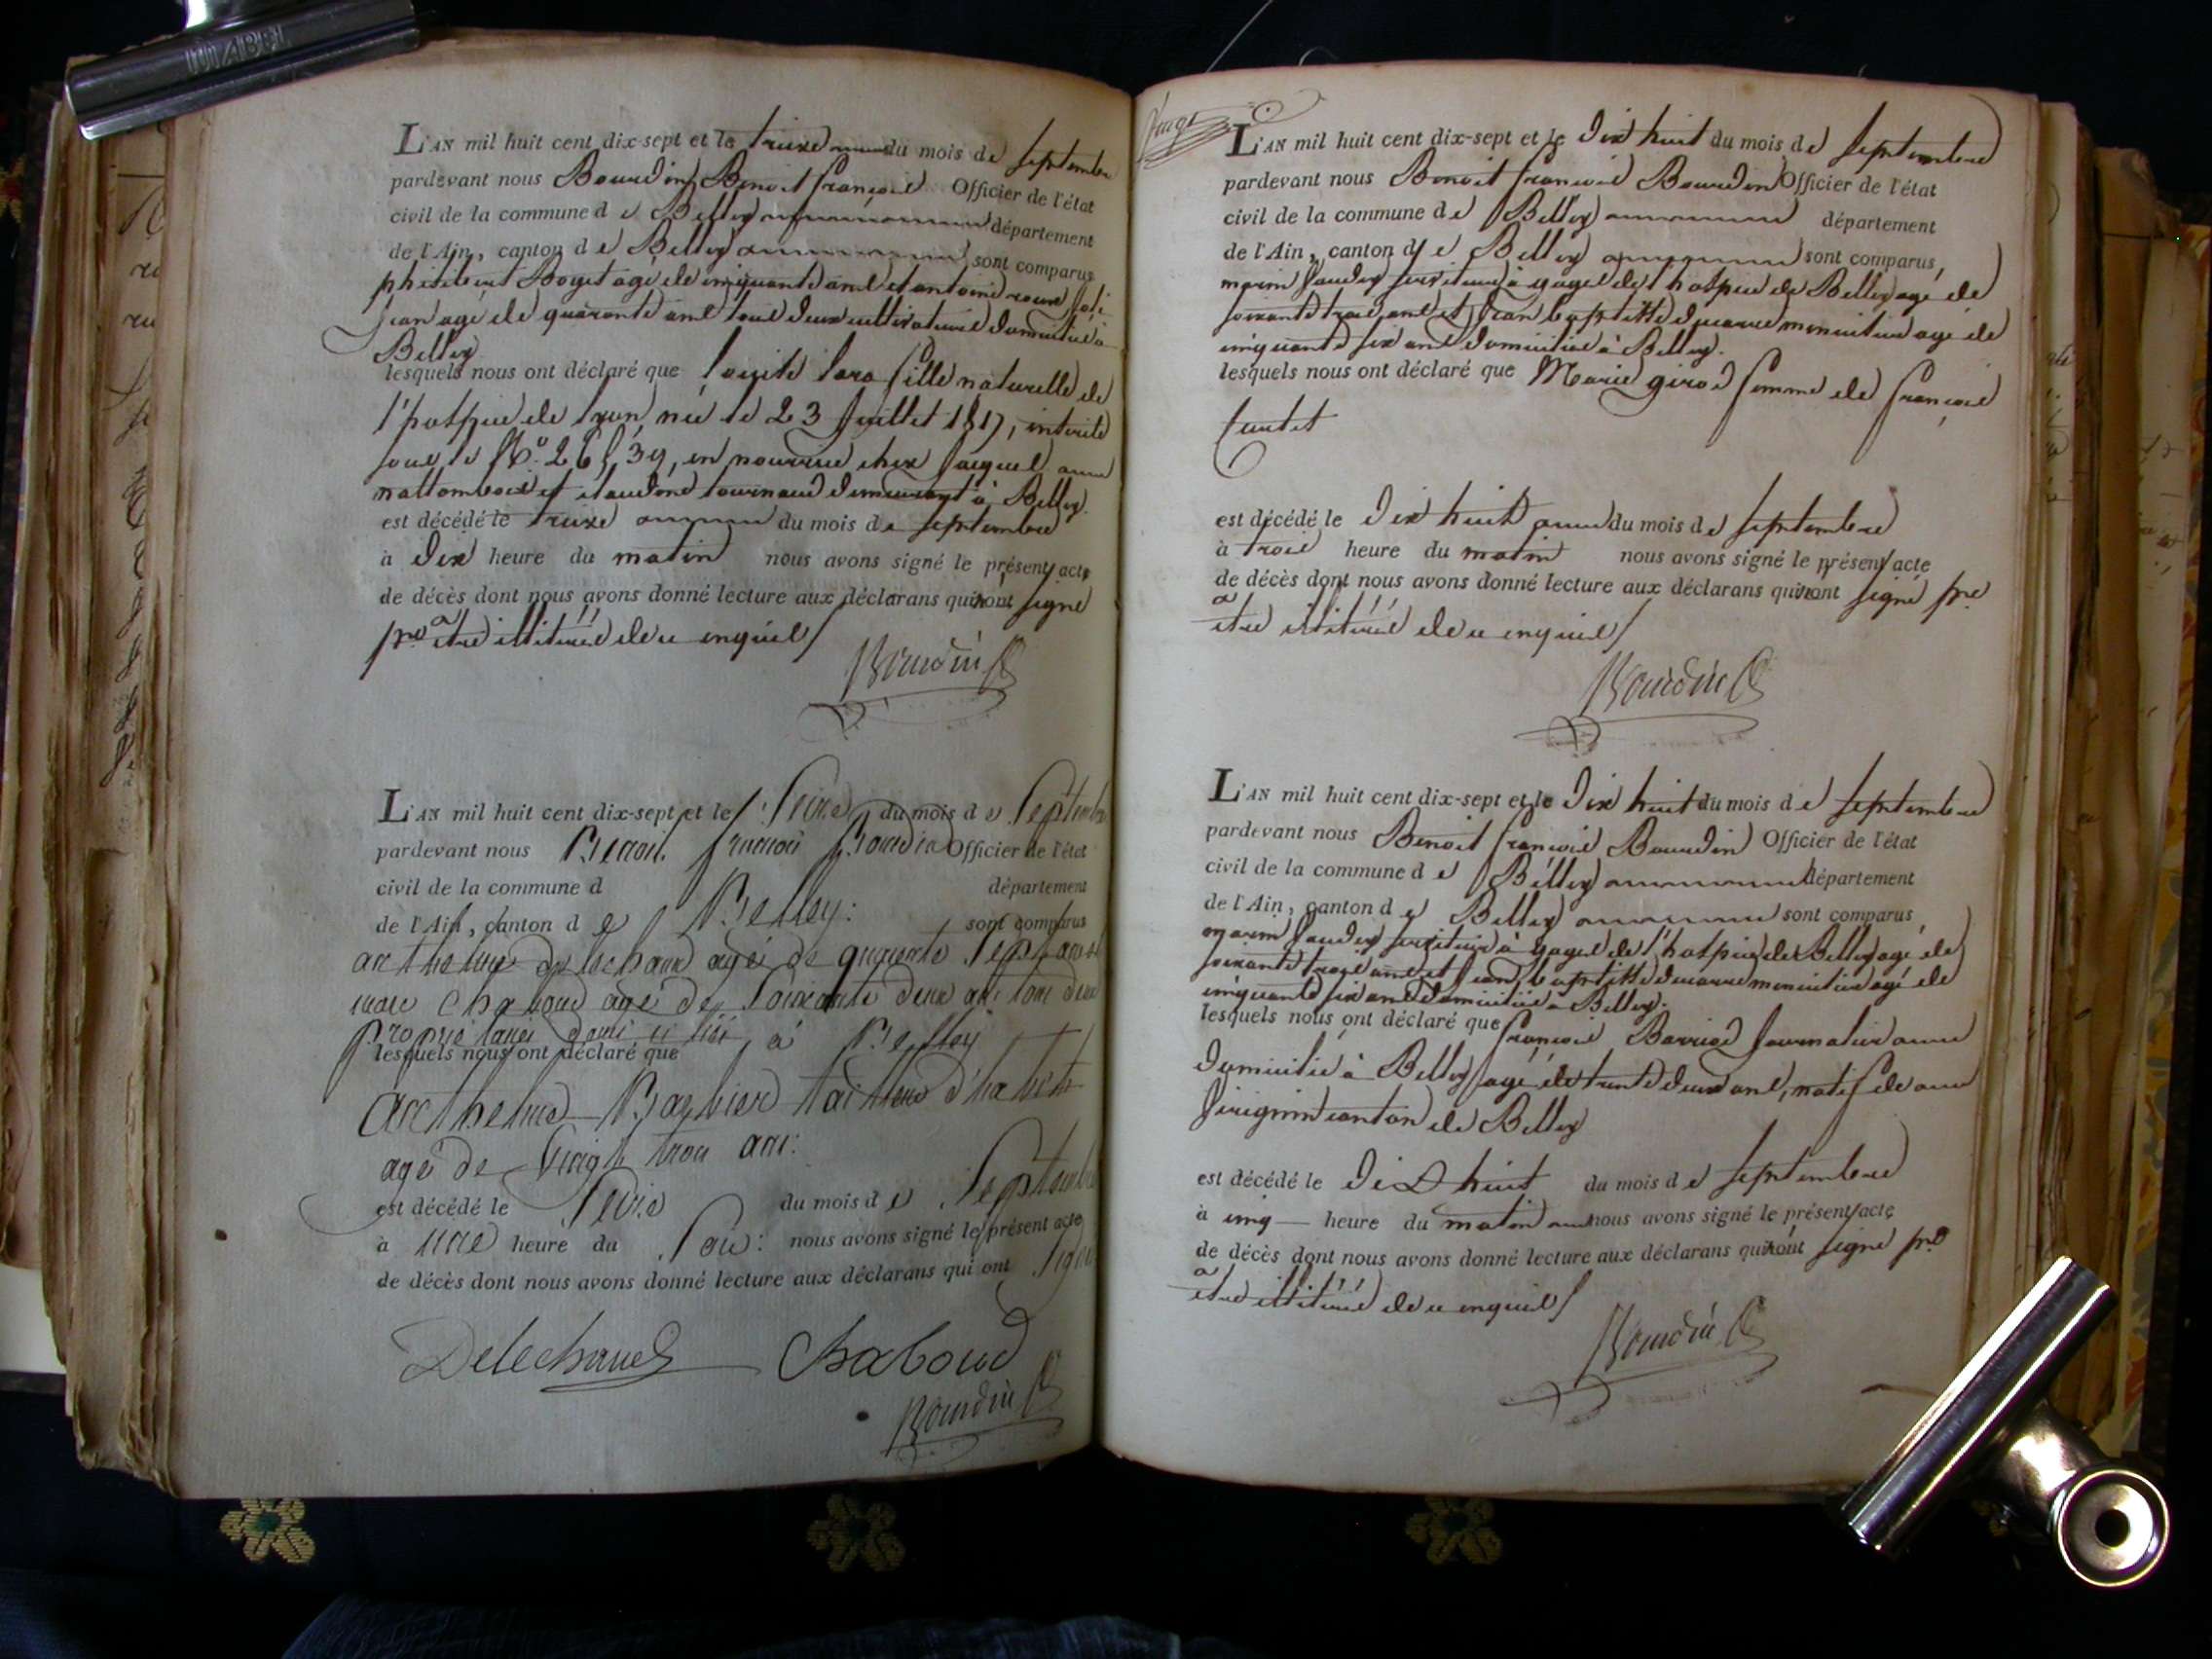 MABEL
L'AN mil huit cent dix-sept et le treize du mois de Septembre
pardevant nous Bourdin Benoit françois Officier de l'état
civil de la commune de Belley département
de l'Ain, canton de Belley sont comparus
philibert Boget agé de cinquante ans et antoine
jean agé de quarante ans tous deux cultivateurs domiciliés à
Belley
lesquels nous ont déclaré que fille naturelle de
l'hospice de lyon, née le 23 Juillet 1817, inscrite
sous le N.º en nourrice chez Jacques
et claudine tournaud demeurant à Belley.
est décédé le treize du mois de Septembre
à dix heure du matin nous avons signé le présent acte
de décès dont nous avons donné lecture aux déclarans qui n'ont signé
pr. être illitérés de ce enquis
Bourdin
L'AN mil huit cent dix-sept et le Seize du mois de Septembre
pardevant nous Benoit françois Bourdin Officier de l'état
civil de la commune d département
de l'Ain, canton de Belley: sont comparus
anthelme delechaud agé de quarante Sept ans et
marc Chaboud agé de Soixante deux ans tous deux
propriétaires domiciliés à Belley
lesquels nous ont déclaré que
anthelme Barbier tailleur d'habits
agé de vingt trois ans:
est décédé le Seize du mois de Septembre
à une heure du Soir: nous avons signé le présent acte
de décès dont nous avons donné lecture aux déclarans qui ont Signé
Delechaud Chaboud
Bourdin
L'AN mil huit cent dix-sept et le dix huit du mois de Septembre
pardevant nous Benoit françois Bourdin Officier de l'état
civil de la commune de Belley département
de l'Ain, canton de Belley sont comparus,
marin serviteur à gages de l'hospice de Belley agé de
soixante trois ans et Jean baptiste ducarre menuisier agé de
cinquante six ans domiciliés à Belley.
lesquels nous ont déclaré que Marie girod femme de françois
est décédé le dix huit du mois de Septembre
à trois heure du matin nous avons signé le présent acte
de décès dont nous avons donné lecture aux déclarans qui n'ont signé pr.
être illitérés de ce enquis
Bourdin
L'AN mil huit cent dix-sept et le dix huit du mois de Septembre
pardevant nous Benoit françois Bourdin Officier de l'état
civil de la commune de Belley département
de l'Ain, canton de Belley sont comparus,
marin serviteur à gages de l'hospice de Belley agé de
soixante trois ans et Jean baptiste ducarre menuisier agé de
cinquante six ans domiciliés à Belley.
lesquels nous ont déclaré que françois Barriod Journalier
domicilié à Belley agé de trente deux ans, natif de
canton de Belley
est décédé le dix huit du mois de Septembre
à cinq heure du matin nous avons signé le présent acte
de décès dont nous avons donné lecture aux déclarans qui n'ont signé pr.
être illitérés de ce enquis
Bourdin